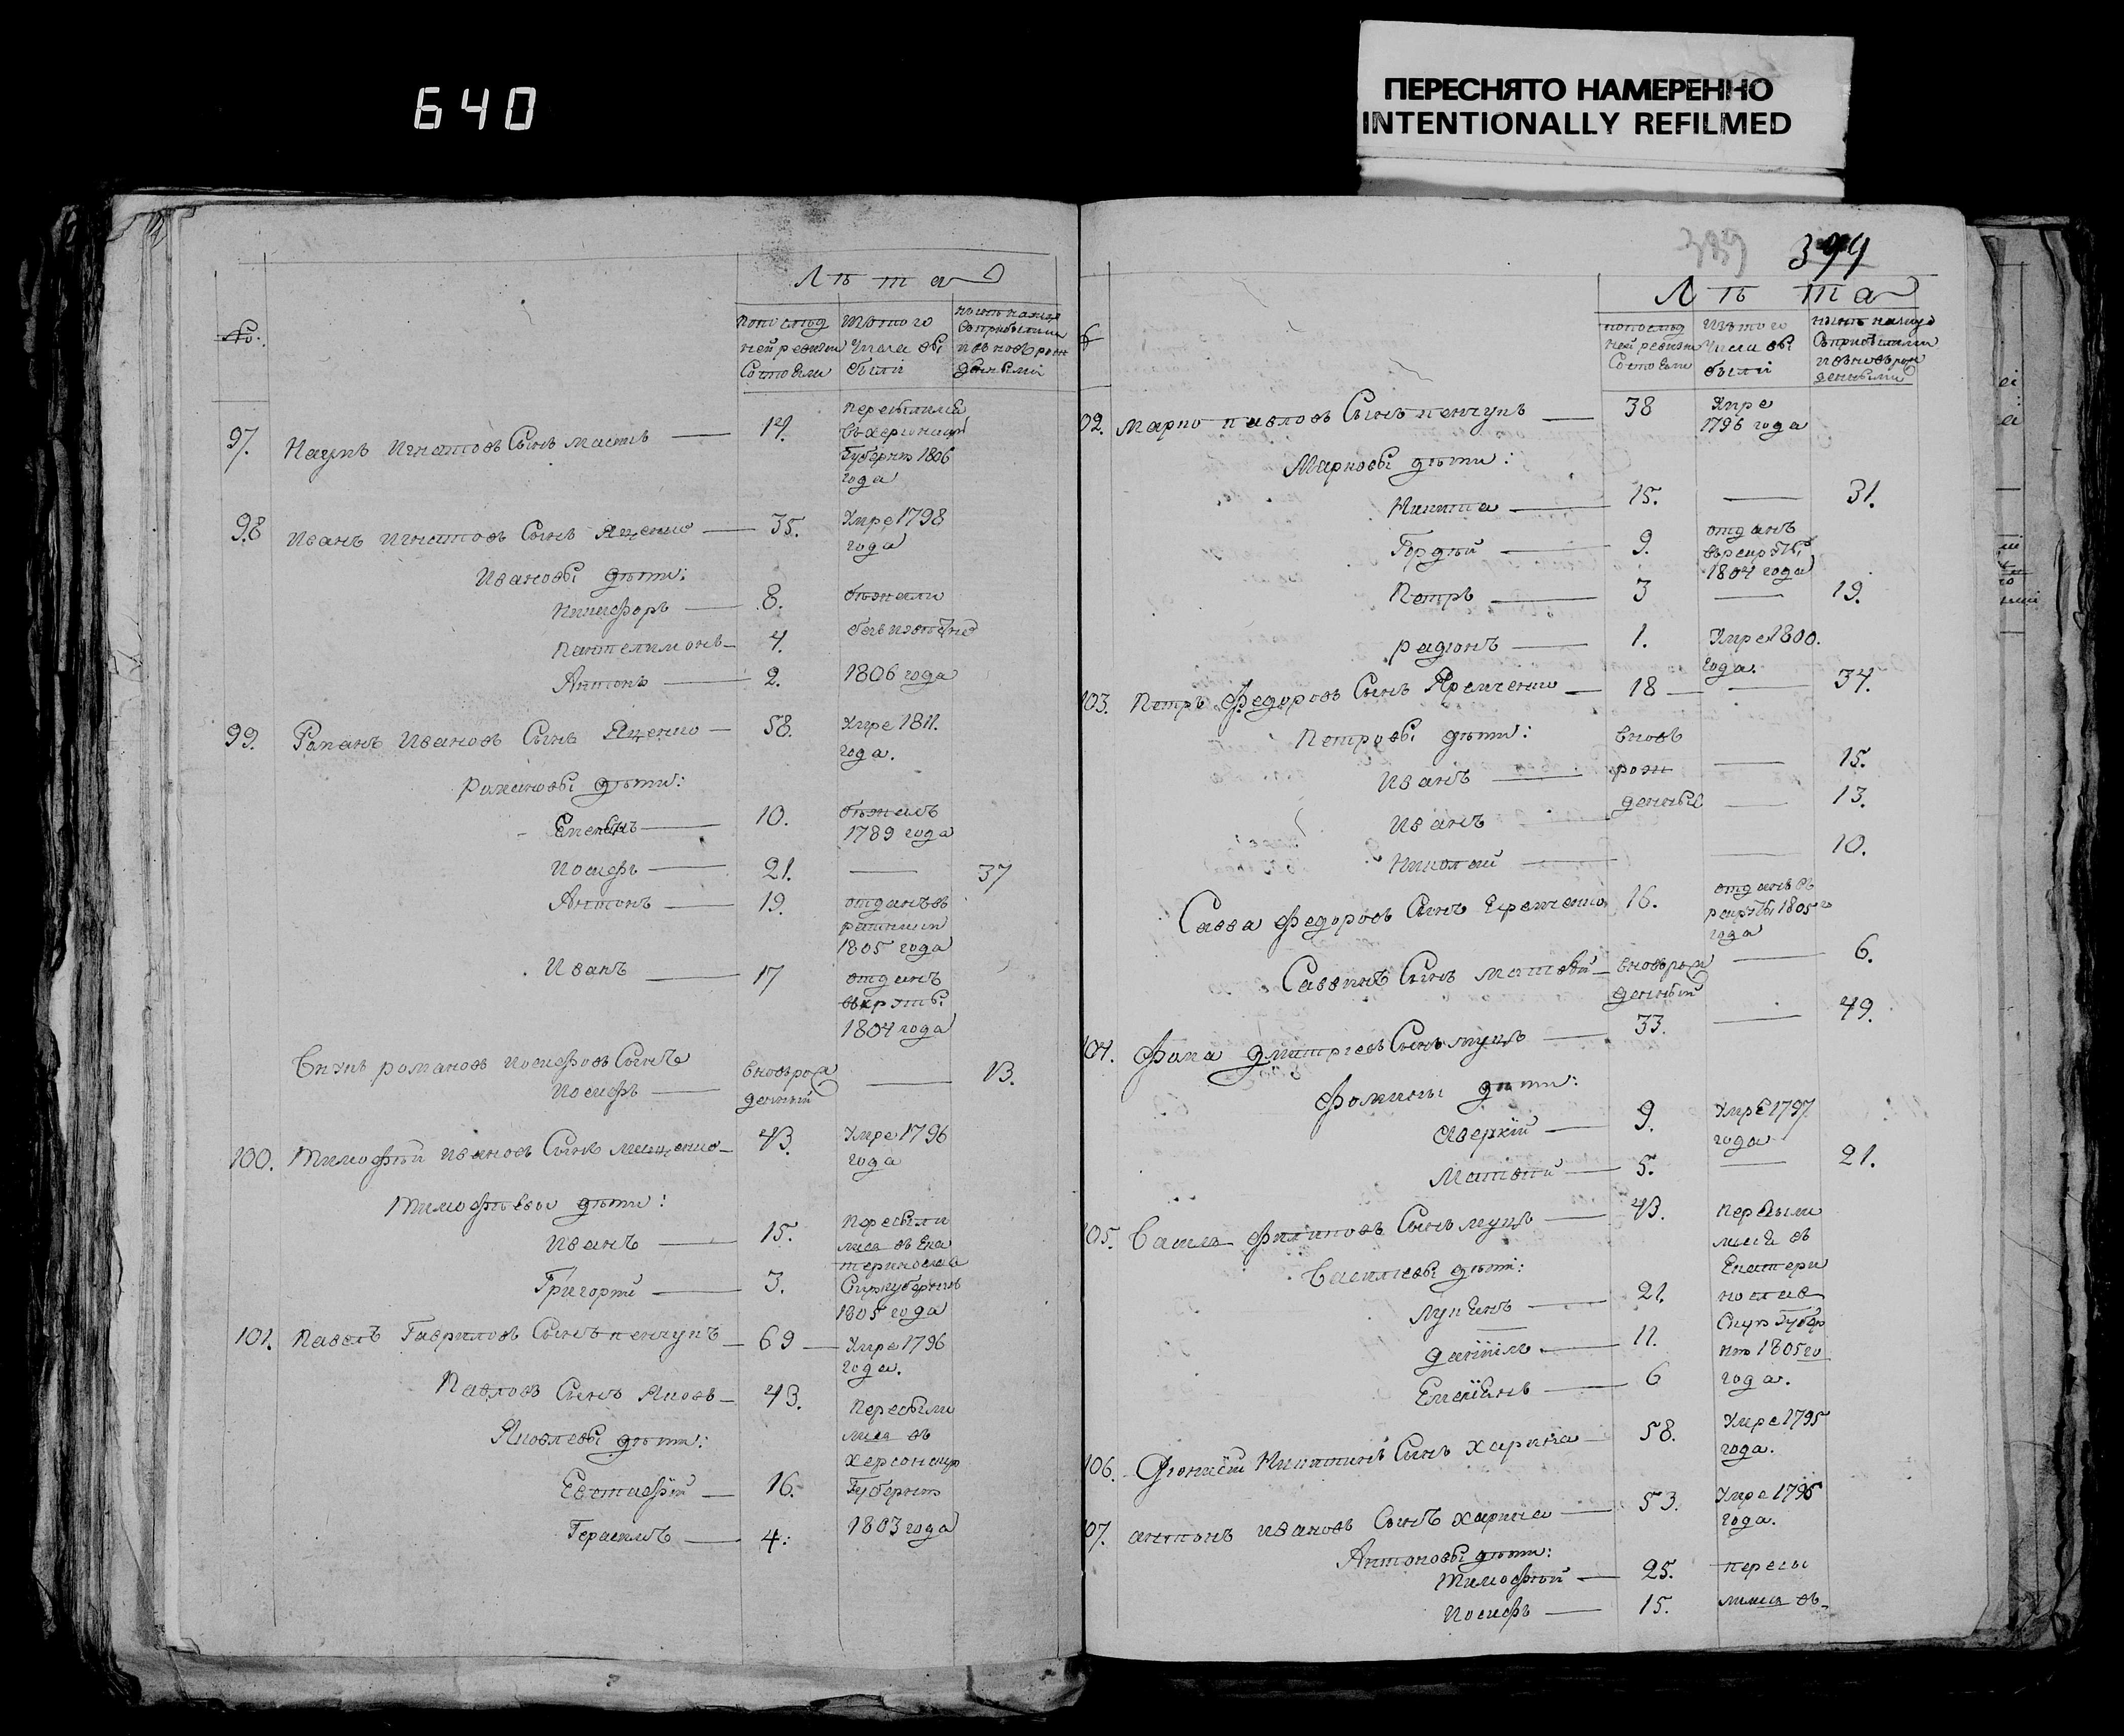 640
ПЕРЕСНЯТО НАМЕРЕННО
INTENTIONALLY REFILMED
№.
Лѣта
попослѣд
ней ревизіи
Состояли
изътого
Числа вы
были
нынѣ налицо
Съприбылыми
ивновь рож
денными
97. Наумъ Игнатовъ Сынъ 14.
переселился
въхерсонскую
Губернію 1806
года
98 Иванъ Игнатовъ Сынъ Яценко — 35. Умре 1798
года
Ивановы дѣти:
Никифоръ — 8. бѣжали
Пантелимонъ — 4.
Антонъ — 2. 1806 года
99. Романъ Ивановъ Сынъ Яценко — 58. Умре 1811.
года.
Романовы дѣти:
10. бѣжалъ
1789 года
Иосифъ — 21. — 37
Антонъ — 19. отданъ въ
ратники
1805 года
Иванъ — 17 отданъ
врекруты
1804 года
Внукъ романовъ Иосифовъ Сынъ
Иосифъ — вновьрож
денный — 13.
100. Тимофѣй Ивановъ Сынъ Мищенко — 43. Умре 1796
года
Тимофѣевы дѣти:
Иванъ — 15. Пересели
лися въ Ека
теринослав
Григорій — 3. Скуюгубернію
1805 года
101. Павелъ Гавриловъ Сынъ пенчукъ — 69 — Умре 1796
года.
Павловъ Сынъ Яковъ — 43. Пересели
лися въ
Яковлевы дѣти:
Херсонскую
Евстафій — 16. Губернію
Герасимъ — 4: 1803 года
389 394
Лѣта
попослѣд
ней ревизіи
Состояли
изътого
Числа вы
были
нынѣ налицо
Съприбылыми
ивновьрож
денными
02. Марко павловъ Сынъ пенчукъ — 38 Умре
1796 года
Марковы дѣти:
Никита — 15. — 31.
Гордѣй — 9. отданъ
врекруты
1804 года
Петръ — 3 — 19.
радіонъ — 1. Умре 1800.
года.
103. Петръ Федоровъ Сынъ Яременко — 18 — 34.
Петровы дѣти: вновь
Иванъ — рож — 15.
Иванъ — денные — 13.
Николай — — 10.
Савва Федоровъ Сынъ Еременко 16. отданъ въ
рекруты 1805го
года
Саввинъ Сынъ Матвѣй — вновьрож
денный — 6.
104. Фома Дмитріевъ Сынъ — 33. — 49.
Фомины дѣти:
Аверкій — 9. Умре 1797
года
Матвѣй — 5. — 21.
105. Василь Филиповъ Сынъ — 43. Пересели
лися въ
Васильевы дѣти: Екатери
Лукіянъ — 21. нослав
Скую Губер
Даніилъ — 11. нію 1805го
6 года.
106. Діонисій Никитинъ Сынъ Харина — 58. Умре 1795
года.
07. антонъ Ивановъ Сынъ харина — 53. Умре 1795
года.
Антоновы дѣти:
Тимофѣй — 25. пересе
Иосифъ — 15. лились въ